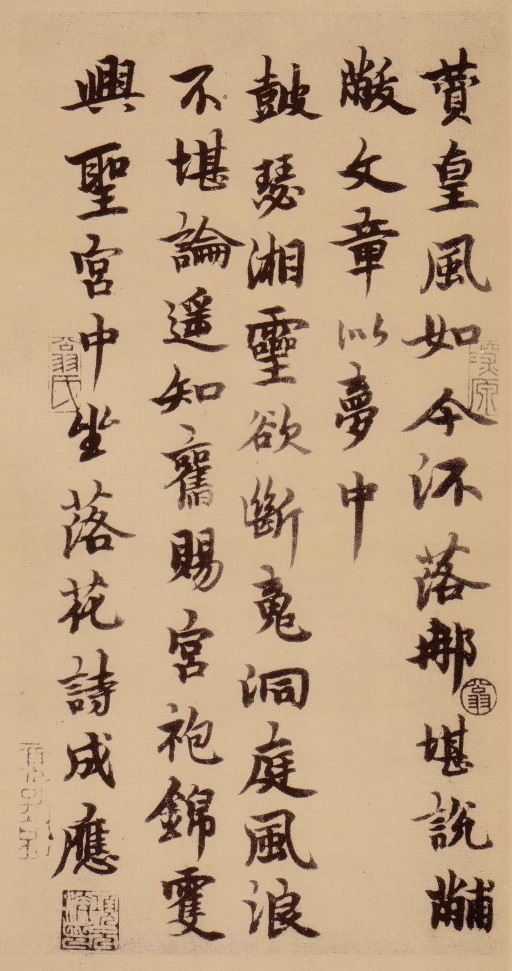 賛皇風如今流落那堪説黼
黻文章似夢中
鼓瑟湘靈欲斷魂洞庭風浪
不堪論遥知舊賜宮袍錦䨇
興聖宮中坐落花詩成應
翁氏